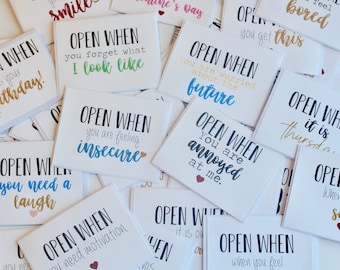 smile
Valentine's Day
bored
you get this
OPEN WHEN
you forget what
I look like
OPEN WHEN
you are worried
about the
future
OPEN WHEN
it's your
birthday!
OPEN WHEN
you are feeling
insecure
OPEN WHEN
you are
annoyed
at me.
OPEN WHEN
it is
Thursday
OPEN WHEN
you need a
laugh
OPEN WHEN
OPEN WHEN
you need motivation.
OPEN WHEN
it is
OPEN WHEN
you feel